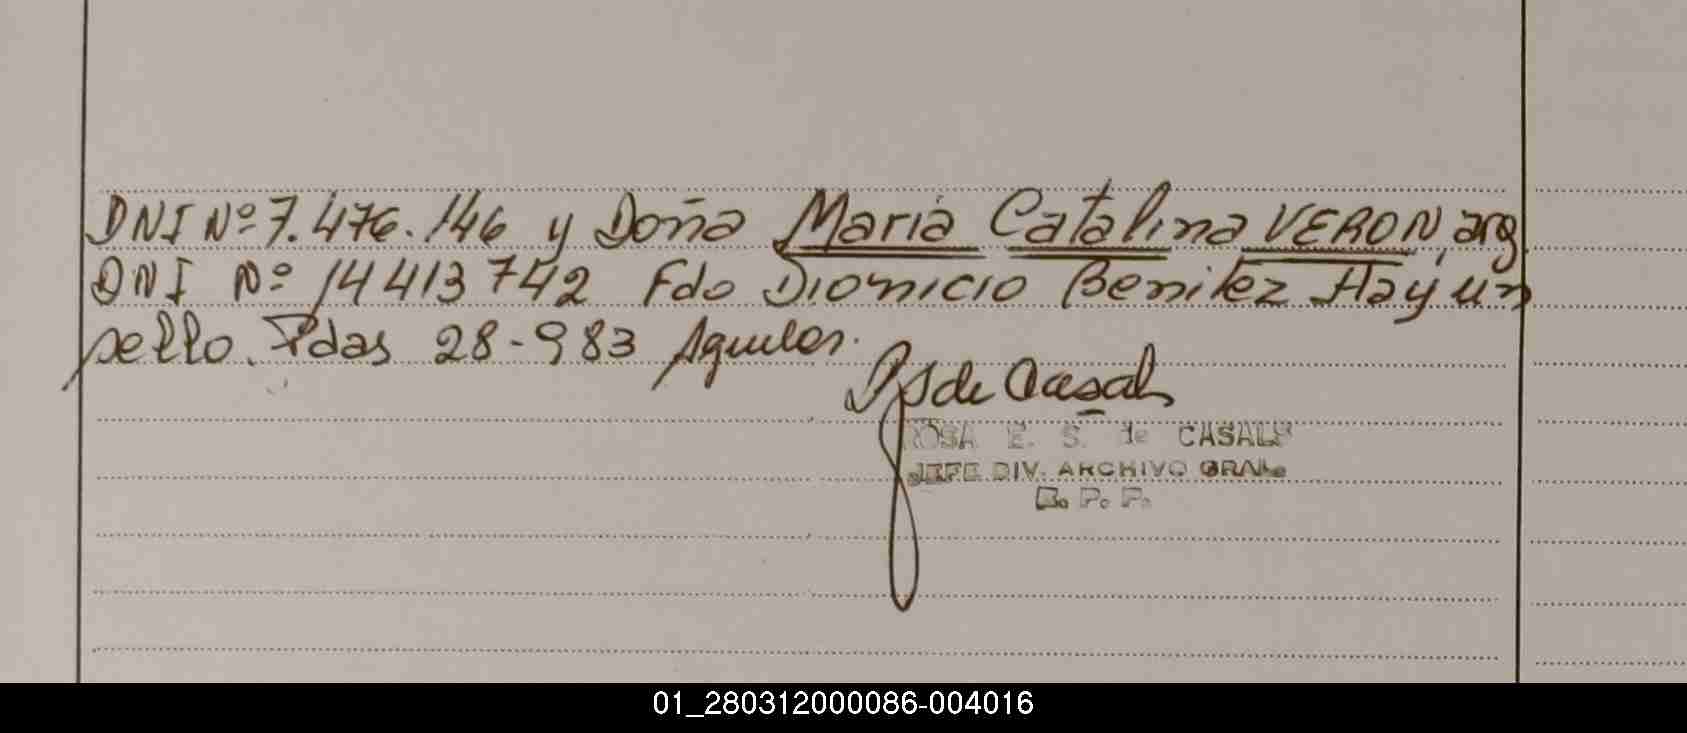 DNI Nº 7.476.146 y Doña Maria Catalina VERON, arg.
DNI Nº 14413742 Fdo Dionicio Benitez Hay un
sello. Pdas 28-983 Aguilar.
de Casals
ROSA E. S. de CASALS
JEFE DIV. ARCHIVO GRAL.
R. P. P.
01_280312000086-004016